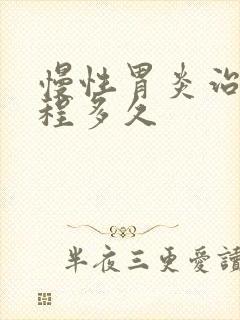 慢性胃炎治
程多久
半夜三更愛讀